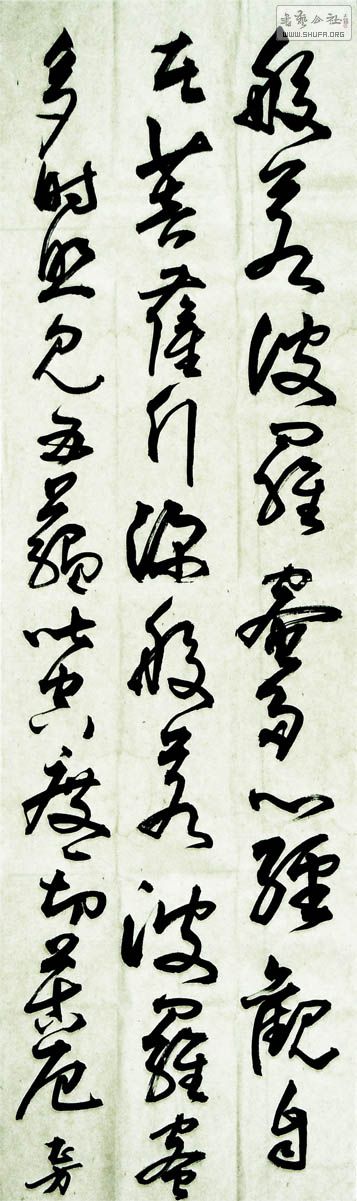 般若波羅蜜多心經觀自
在菩薩行深般若波羅蜜
多時照見五蘊皆空度一切苦厄
书艺公社
WWW.SHUFA.ORG